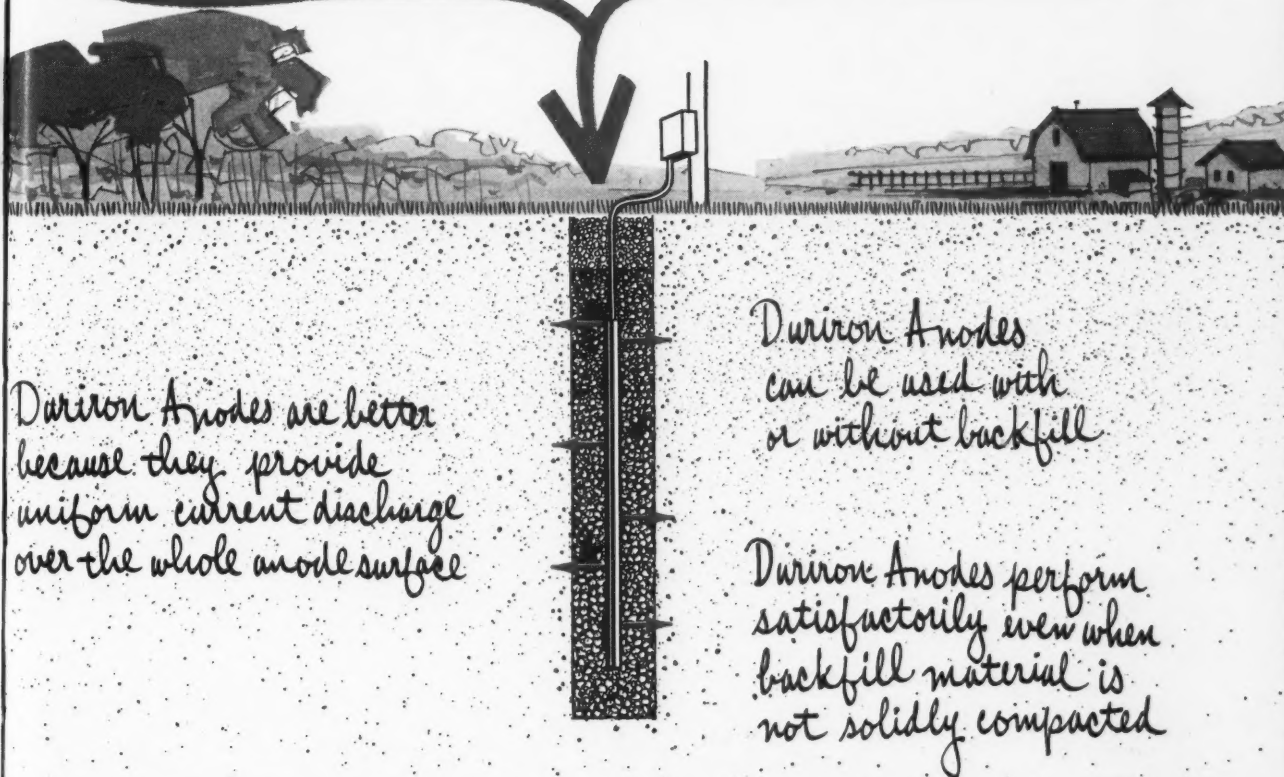 Duriron Anodes are better
because they provide
uniform current discharge
over the whole anode surface
Duriron Anodes
can be used with
or without backfill
Duriron Anodes perform
satisfactorily even when
backfill material is
not solidly compacted